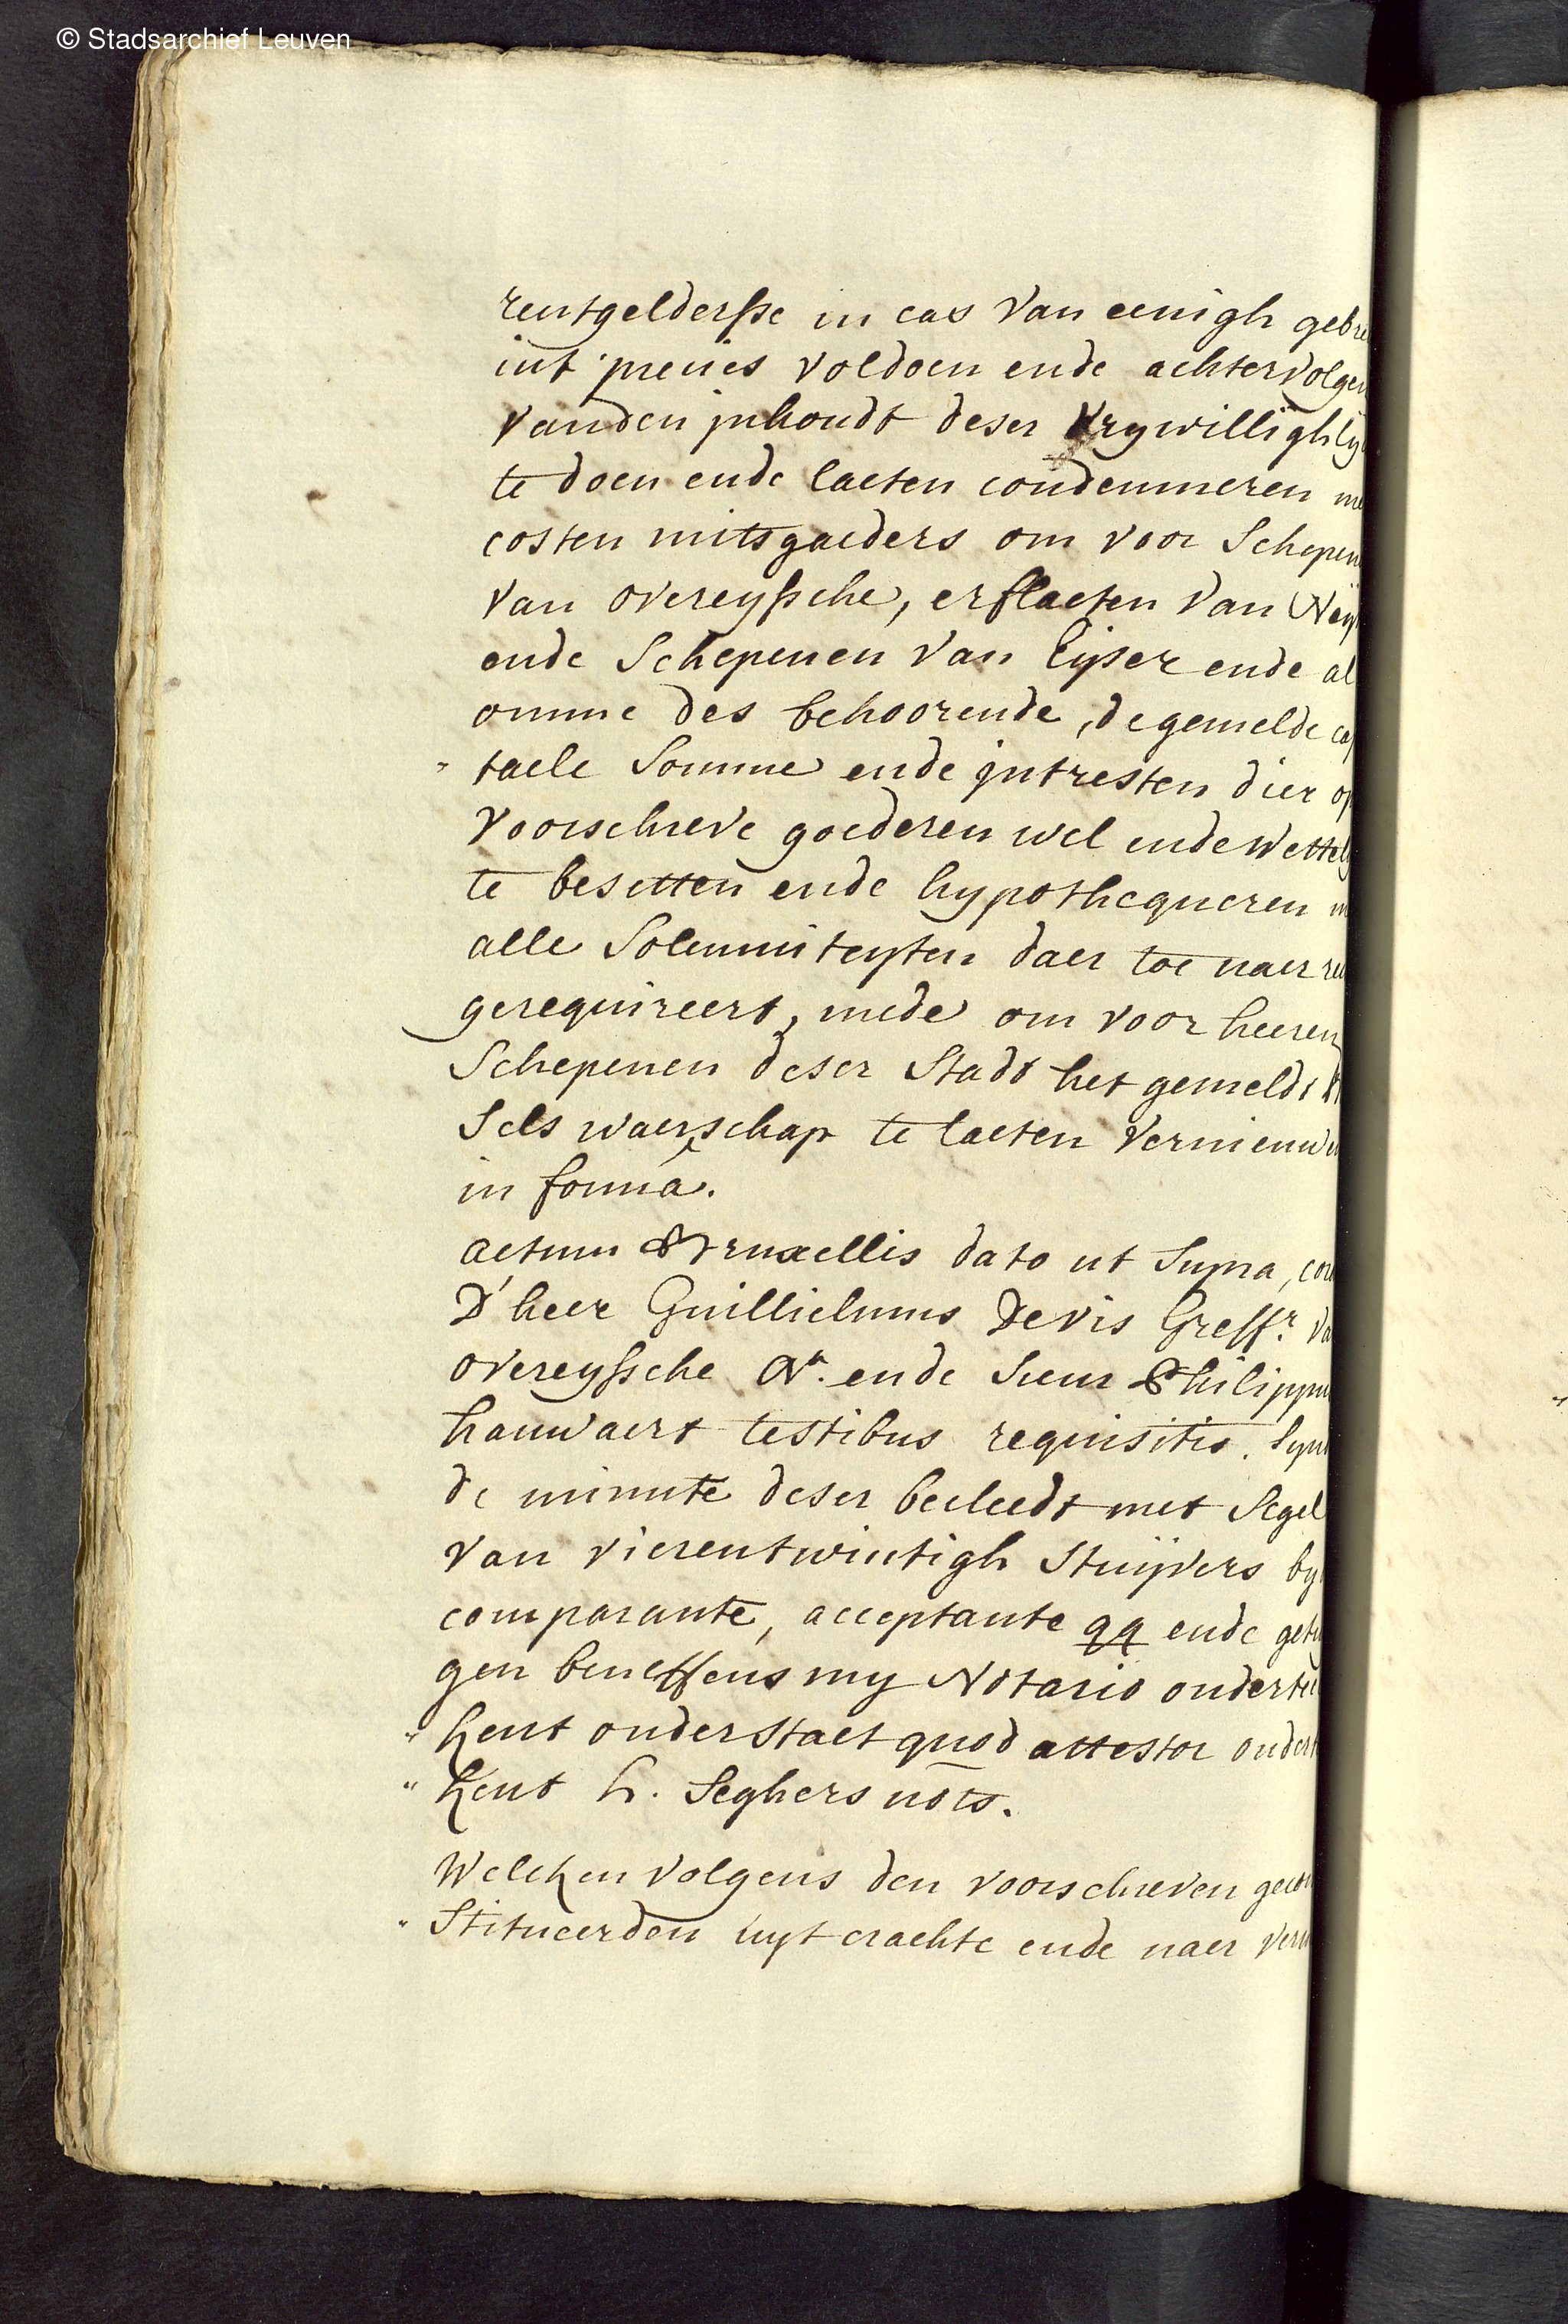 © Stadsarchief Leuven
rentgeldersse in cas van eenigh gebre
int precies voldoen ende achtervolgen
vanden jnhoudt deser vrywillighly
te doen ende laeten condemneren me
costen mitsgaeders om voor Schepen
van overeyssche, erflaeten van Neys
ende Schepenen van Eijser ende al
omme des behoorende, de gemelde cap
" taele Somme ende jntresten dier op
voorschreve goederen wel ende Wettely
te besetten ende hypothequeren m
alle Solemniteyten daer toe naer re
gerequireert, mede om voor heeren
Schepenen deser Stadt het gemeldt
Sels waerschap te laeten vernieuwe
in forma.
actum Bruxellis dato ut Supra, cor
D'heer Guillielmus Devis Greffr. va
overeyssche Nr. ende Sieur Philippus
hauwaert testibus requisitis. Syn
de minute deser becleedt met Segel
van vierentwintigh Stuijvers by
comparante, acceptante qq ende getu
gen beneffens my Notario onderte
" kent onderstaet quod attestor ondert
" kent h. Seghers nots.
Welcken volgens den voorschreven gecon
" Stitueerden uyt crachte ende naer verm